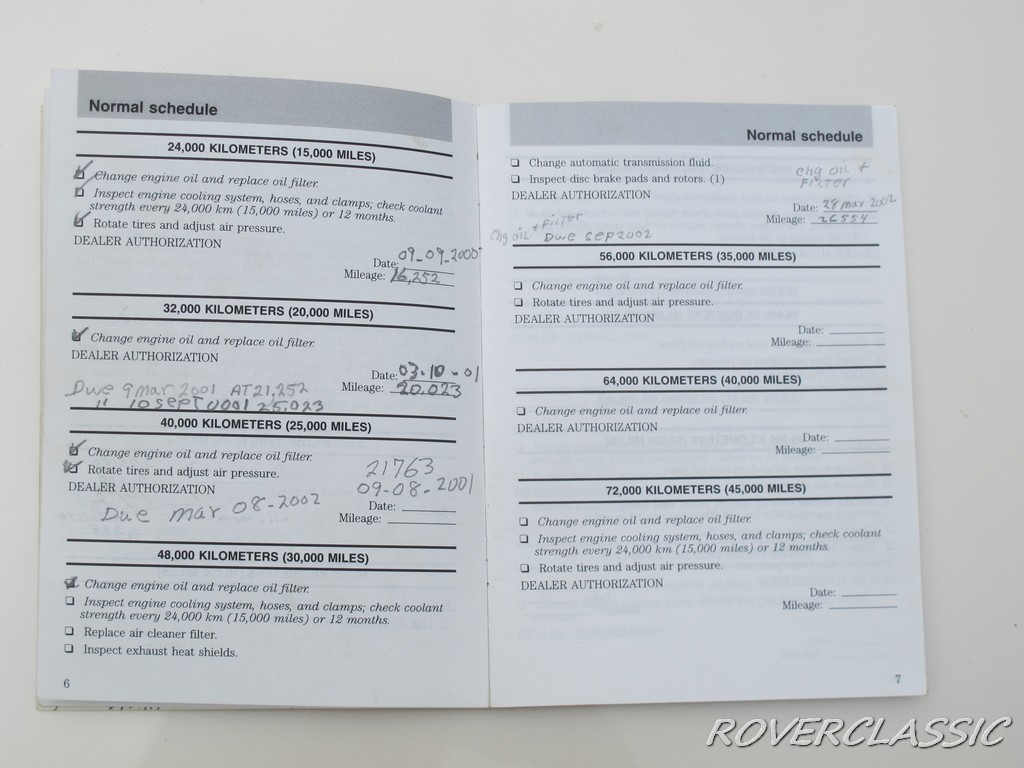 Normal schedule
24,000 KILOMETERS (15,000 MILES)
Change engine oil and replace oil filter.
Inspect engine cooling system, hoses, and clamps; check coolant
strength every 24,000 km (15,000 miles) or 12 months.
Rotate tires and adjust air pressure.
DEALER AUTHORIZATION
Date: 09-09-2000
Mileage: 16,252
32,000 KILOMETERS (20,000 MILES)
Change engine oil and replace oil filter.
DEALER AUTHORIZATION
Date: 03-10-01
Mileage: 20.023
Due 9 mar 2001 AT 21,252
" 10 sept 25,023
40,000 KILOMETERS (25,000 MILES)
Change engine oil and replace oil filter.
Rotate tires and adjust air pressure.
21763
DEALER AUTHORIZATION
09-08-2001
Due mar 08-2002
Date:
Mileage:
48,000 KILOMETERS (30,000 MILES)
Change engine oil and replace oil filter.
Inspect engine cooling system, hoses, and clamps; check coolant
strength every 24,000 km (15,000 miles) or 12 months.
Replace air cleaner filter.
Inspect exhaust heat shields.
6
Normal schedule
Change automatic transmission fluid.
Inspect disc brake pads and rotors. (1)
chg oil +
FilTER
DEALER AUTHORIZATION
Date: 28 mar 2002
Mileage: 26554
Chg oil + FilTER
Due sep 2002
56,000 KILOMETERS (35,000 MILES)
Change engine oil and replace oil filter.
Rotate tires and adjust air pressure.
DEALER AUTHORIZATION
Date:
Mileage:
64,000 KILOMETERS (40,000 MILES)
Change engine oil and replace oil filter.
DEALER AUTHORIZATION
Date:
Mileage:
72,000 KILOMETERS (45,000 MILES)
Change engine oil and replace oil filter.
Inspect engine cooling system, hoses, and clamps; check coolant
strength every 24,000 km (15,000 miles) or 12 months.
Rotate tires and adjust air pressure.
DEALER AUTHORIZATION
Date:
Mileage:
7
ROVERCLASSIC